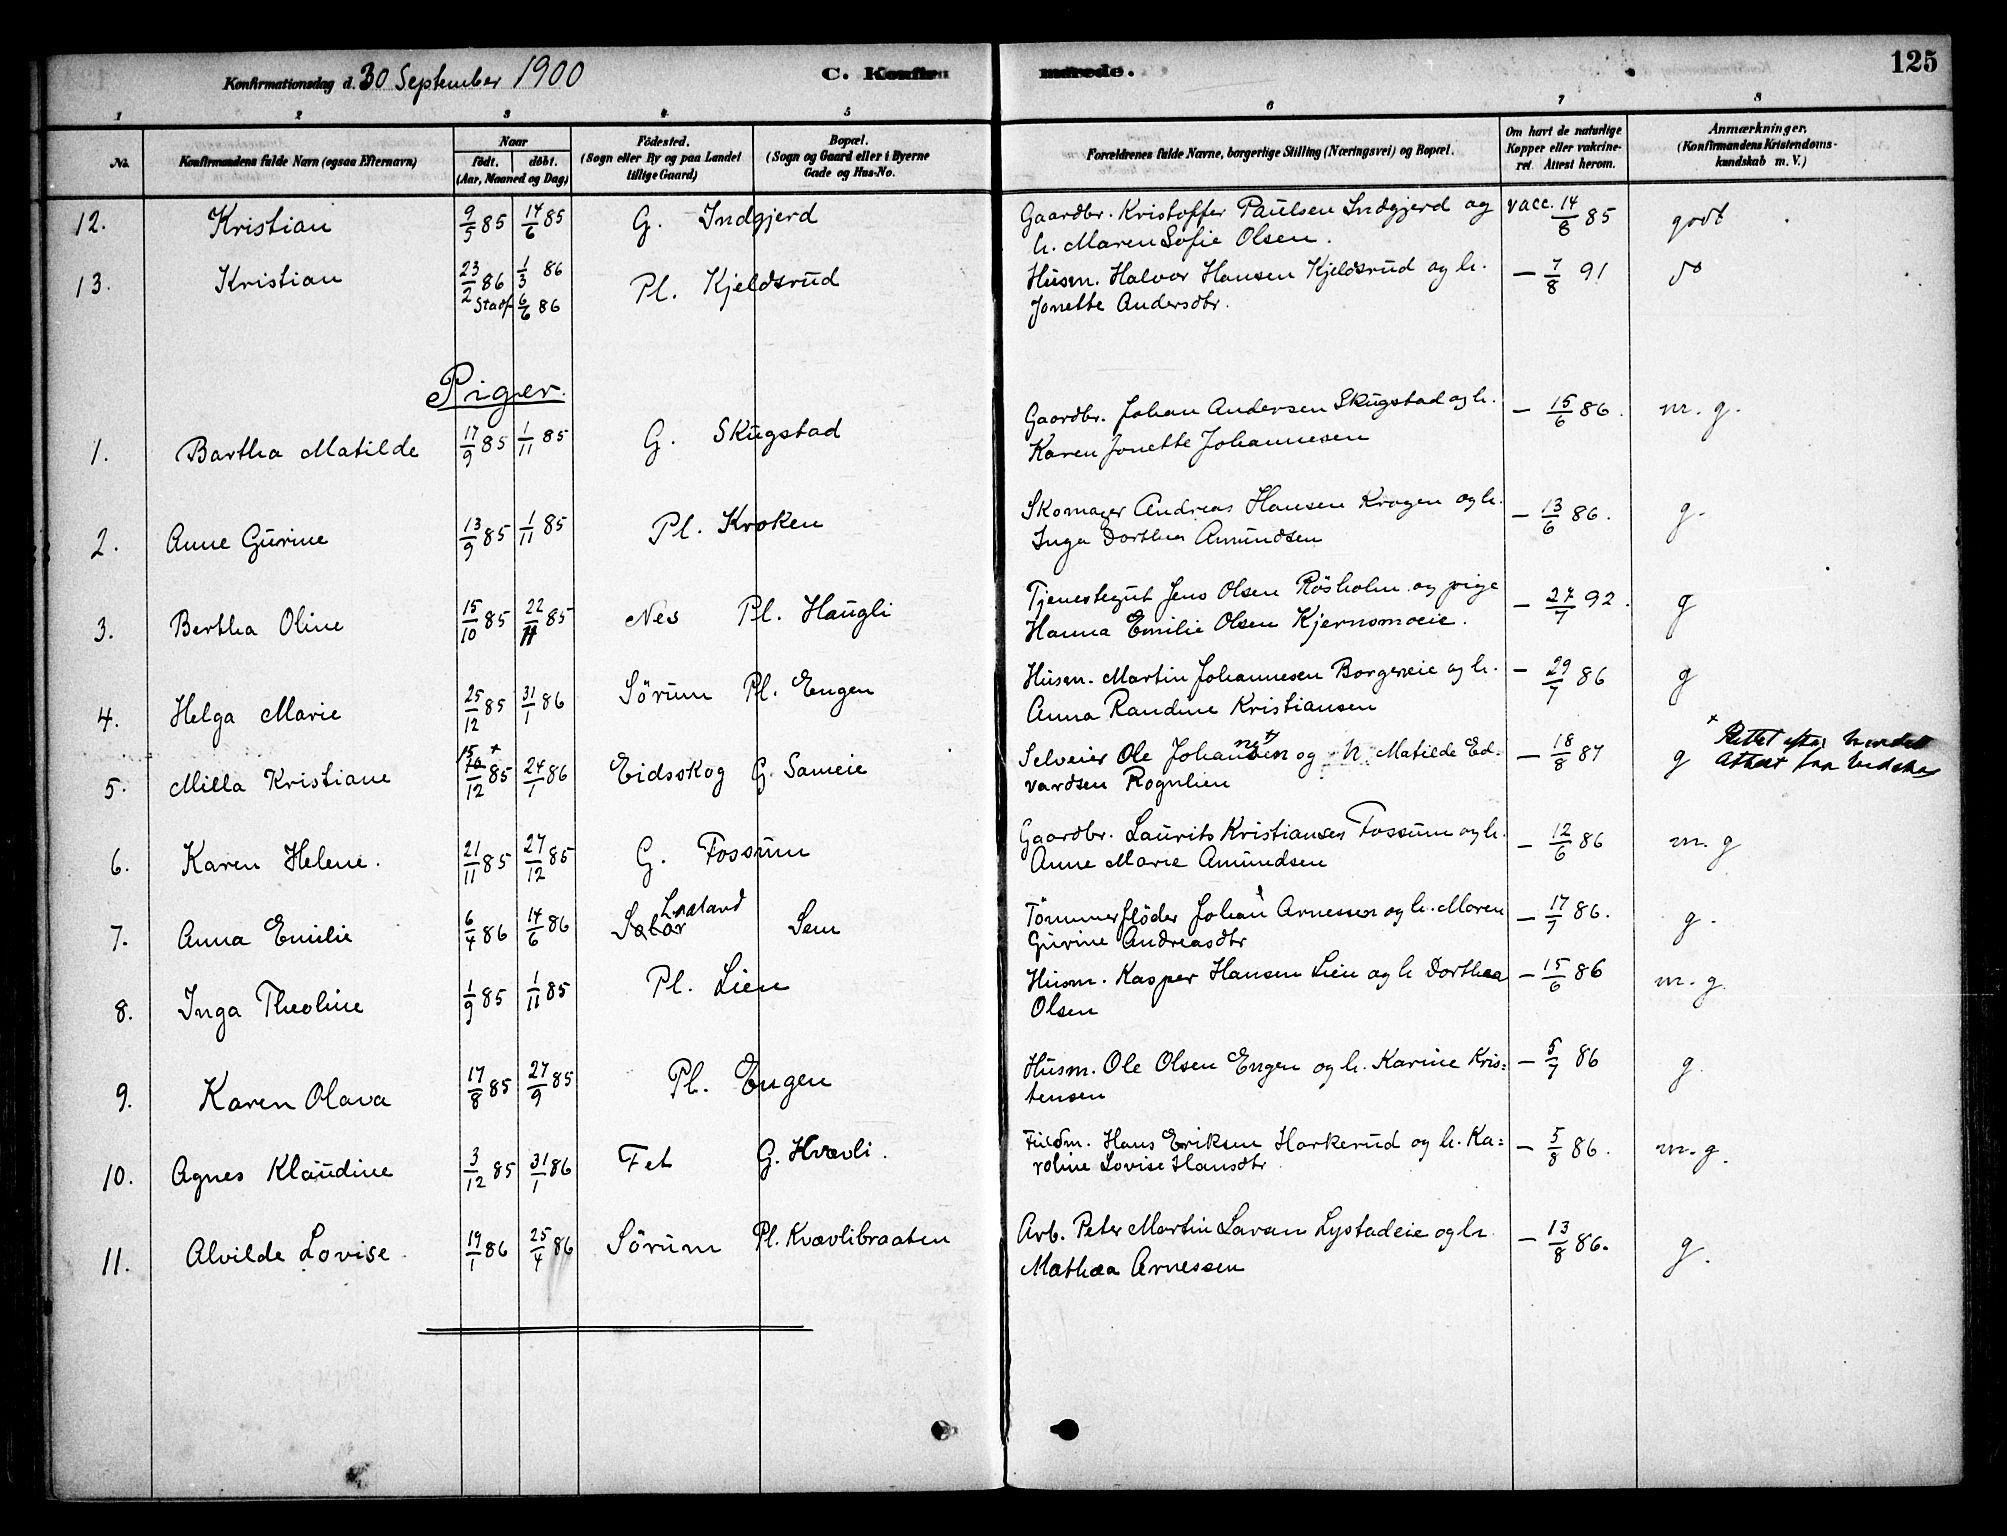 Konfirmationsdag d. 30 September 1900 C. Konfir- merede. 125
1 2 3 4 5 6 7 8
No. Konfirmandens fulde Navn (ogsaa Efternavn)
Naar födt. döbt. (Aar, Maaned og Dag)
Födested. (Sogn eller By og paa Landet tillige Gaard)
Bopæl. (Sogn og Gaard eller i Byerne Gade og Hus-No.
Forældrenes fulde Navne, borgerlige Stilling (Næringsvei) og Bopæl.
Om havt de naturlige Kopper eller vakcineret. Attest herom.
Anmærkninger. (Konfirmandens Kristendomskundskab m. V.)
12. Kristian 9/5 85 14/6 85 G. Indgjerd Gaardbr. Kristoffer Paulsen Indgjerd og vacc. 14/8 85 godt
h. Maren Sofie Olsen.
13. Kristian 23/2 86 1/3 86 Pl. Kjeldsrud Husm. Halvor Hansen Kjeldsrud og h. — 7/8 91 do
Stadf. 6/6 86 Jonette Andersdtr.
Piger.
1. Bartha Matilde 17/9 85 1/11 85 G. Skugstad Gaardbr. Johan Andersen Skugstad og h. — 15/6 86. m. g.
Karen Jonette Johannesen
2. Anne Gurine 13/9 85 1/11 85 Pl. Kroken Skomager Andreas Hansen Krogen og h. — 13/6 86. g.
Inga Dorthea Amundsen
3. Bertha Oline 15/10 85 22/11 85 Nes Pl. Haugli Tjenestegut Jens Olsen Rösholm og pige — 27/7 92. g
Hanna Emilie Olsen Kjernsmoeie.
4. Helga Marie 25/12 85 31/1 86 Sörum Pl. Engen Husm. Martin Johannesen Borgeneie og h. — 29/7 86 g
Anna Randine Kristiansen
5. Milla Kristiane 15+/12 85 24/1 86 Eidsskog G. Sameie Selveier Ole Johannesen og h. Matilde Ed- — 18/8 87 g + Rettet efter
vardsen Rognlien Attest fra
6. Karen Helene. 21/11 85 27/12 85 G. Fossum Gaardbr. Laurits Kristiansen Fossum og h. — 12/6 86 m. g
Anne Marie Amundsen
7. Anna Emilie 6/4 86 14/6 86 Sem Tömmerflöder Johan Arnessen og h. Maren — 17/7 86. g.
Gurine Andreasdtr
8. Inga Theoline 1/9 85 1/11 85 Pl. Lien Husm. Kasper Hansen Lien og h Dorthea — 15/6 86 m. g
Olsen
9. Karen Olava 17/8 85 27/9 85 Pl. Engen Husm. Ole Olsen Engen og h. Karine Kris= — 5/7 86 g.
tensen
10. Agnes Klaudine 3/12 85 31/1 86 Fet G. Hvævli. Fuldm. Hans Eriksen Harkerud og h. Ka= — 5/8 86. m. g.
roline Lovise Hansdtr
11. Alvilde Lovise. 19/1 86 25/4 86 Sörum Pl. Kvævlibraaten Arb. Peter Martin Lystadeie og h. — 13/8 86. g.
Mathea Arnessen